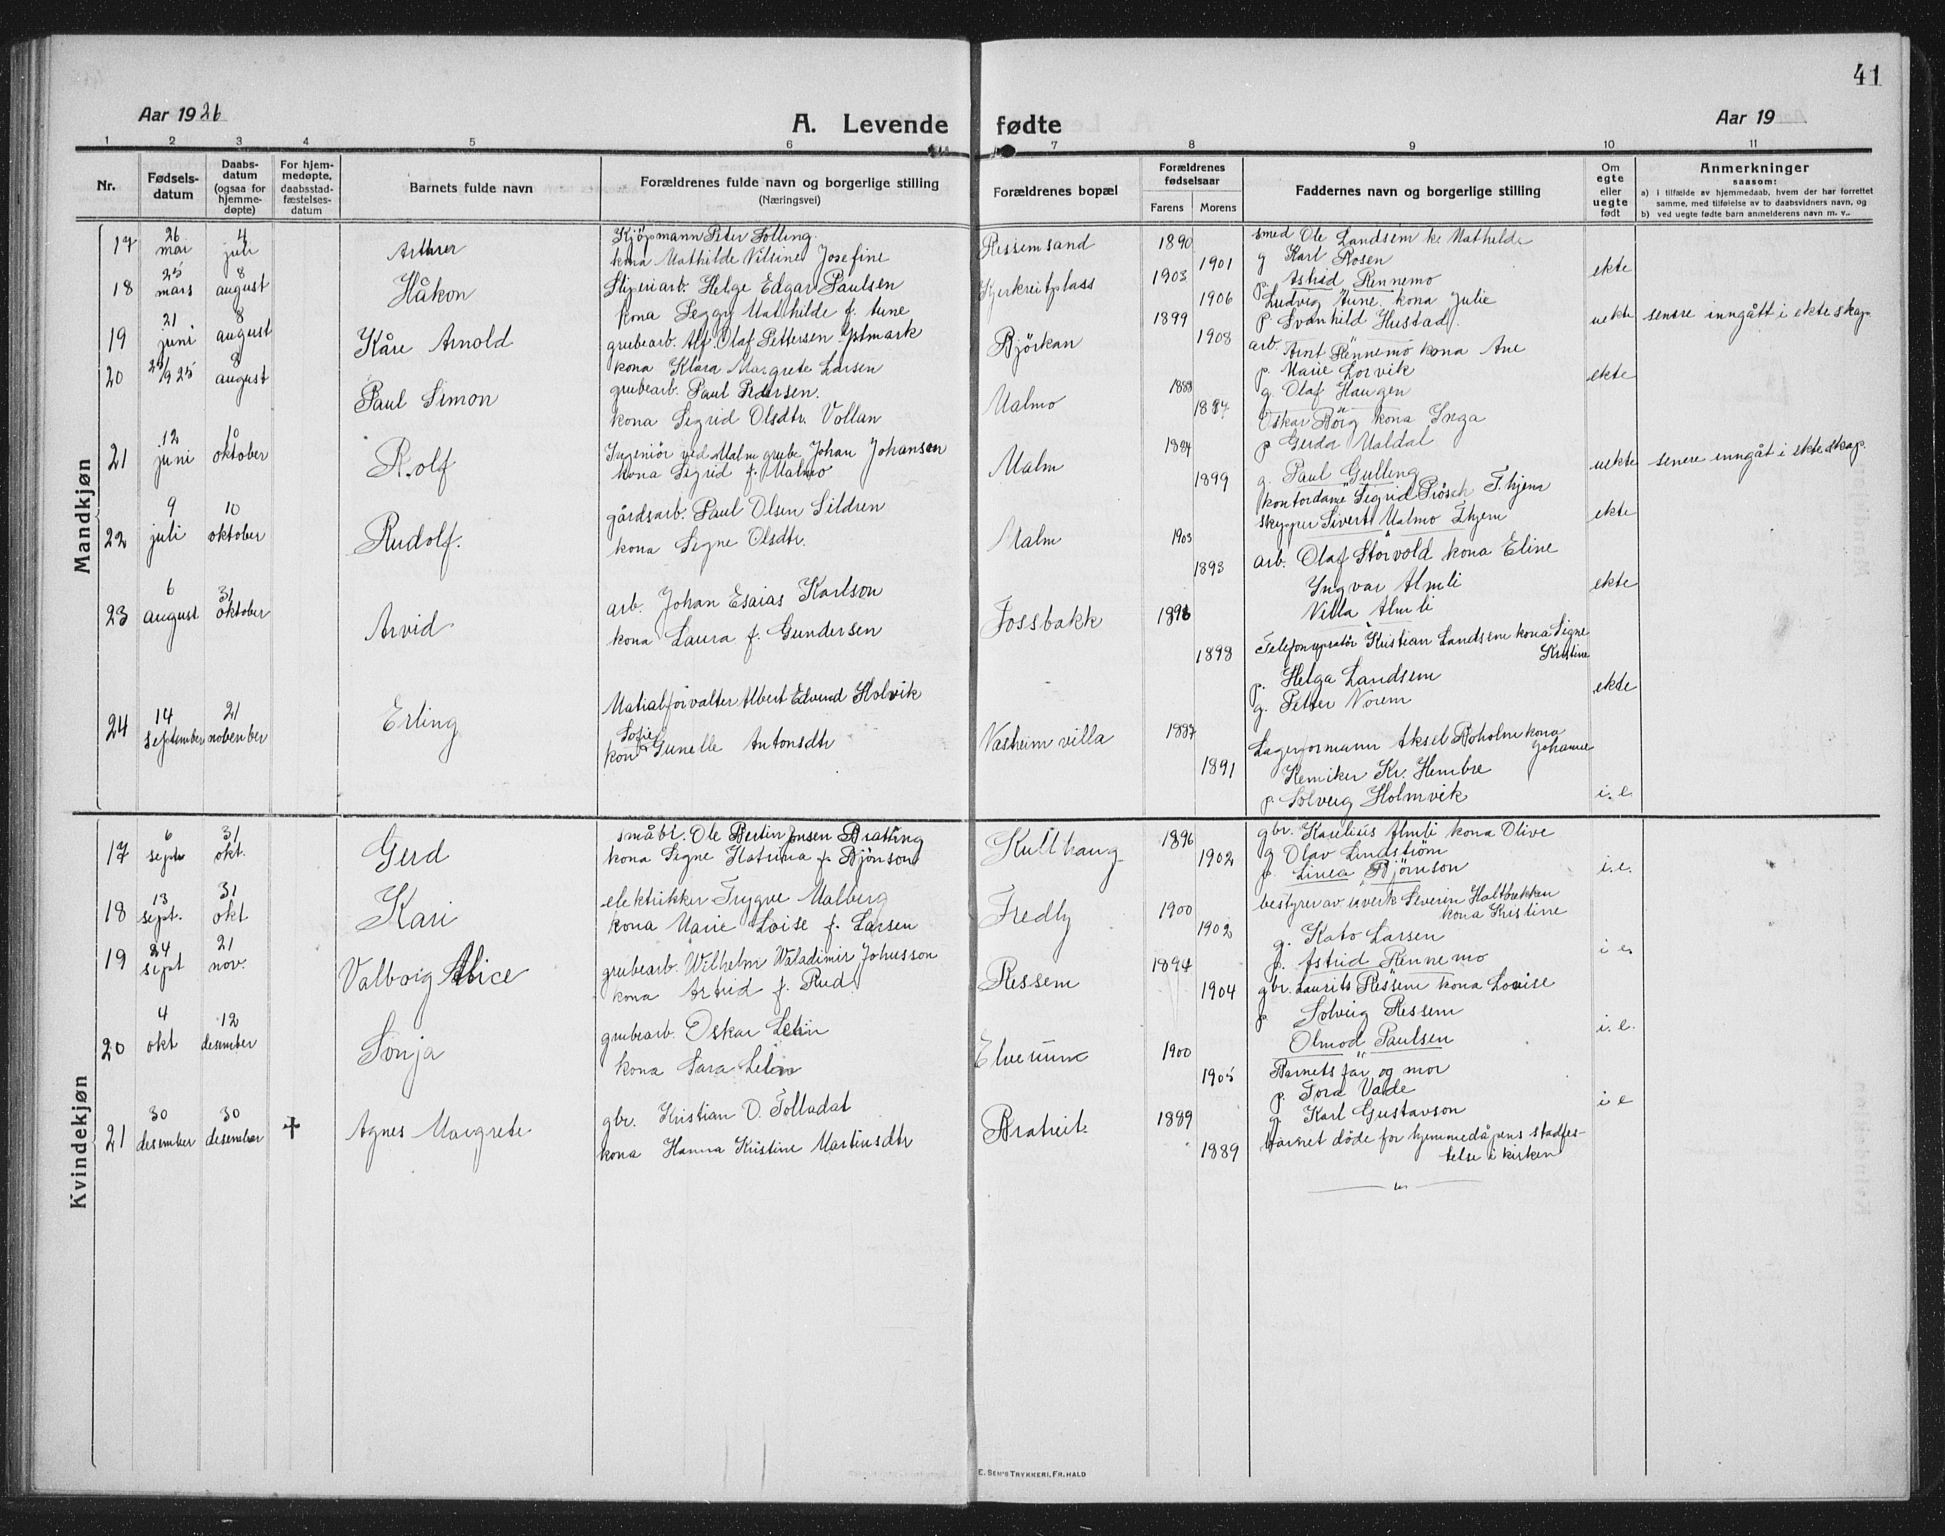 41
Aar 1926
A. Levende fødte
Aar 19
1 2 3 4 5 6 7 8 9 10 11
Nr.
Fødsels-
datum
Daabs-
datum
(ogsaa for
hjemme-
døpte)
For hjem-
medøpte,
daabsstad-
fæstelses-
datum
Barnets fulde navn
Forældrenes fulde navn og borgerlige stilling
(Næringsvei)
Forældrenes bopæl
Forældrenes
fødselsaar
Farens Morens
Faddernes navn og borgerlige stilling
Om
egte
eller
uegte
født
Anmerkninger
saasom:
a) i tilfælde av hjemmedaab, hvem der har forrettet
samme, med tilføielse av to daabsvidners navn, og
b) ved uegte fødte barn anmelderens navn m. v..
Mandkjøn
17 26 mai 4 juli Arthur
Kjøpmann Peter Folling
kona Mathilde Nilsine Josefine
Ressemsand 1890 1901
smed Ole Landsem ke Mathilde
g Karl Rosen
p. Astrid Rennemo
ekte
18 25 mars 8 august Håkon
Stigeriarb. Helge Edgar Paulsen
kona Peggy Mathilde f. Aune
Kjerkreitplass 1903 1906
Ludvig Aune kona Julie
p Svanhild Hustad
uekte senere inngått i ekteskap.
19 21 juni 8 august Kåre Arnold
grubearb. Alf Olaf Pettersen
kona Klara Margrete Larsen
Björkan 1899 1908
arb. Arnt Rennemo kona Ane
p. Marie Lorvik
g. Olaf Haugen
ekte
20 25/9 25 8 august Paul Simon
grubearb. Paul Pedersen.
kona Sigrid Olsdtr. Vollan
Malmo 1889 1897
Oskar Börg kona Inga
p Gerda Maldal
g. Paul Gulling
uekte senere inngåt i ekteskap.
21 12 juni 10 oktober Rolf
Ingeniör ved Malm grube Johan Johansen
kona Sigrid f. Malmo
Malm 1894 1899
kontordame Sigrid Prösch T.hjem
skypper Sivert Malmo Thjem
ekte
22 9 juli 10 oktober Rudolf.
gårdsarb. Paul Olsen Sildren
kona Signe Olsdtr.
Malm 1903 1893
arb. Olaf Storvold kona Eline
Yngvar Almli
Villa Almli
ekte
23 6 august 31 oktober Arvid
arb. Johan Esaias Karlson
kona Laura f. Gundersen
Fossbakk 1898 1898
Kristian Landsem kona Signe
Kristine
p. Helga Landsem
g. Petter Norem
ekte
24 14 September 21 november Erling
Matialforvalter Albert Edvend Holvik
Sofie
kona Gunelle Antonsdtr
Vasheim villa 1887 1891
Lagerformann Aksel Roholm kona
Johanne
Kemiker Kr. Hembre
p Solveig Holmvik
i. e.
Kvindekjøn
17 6 sept. 31 okt. Gerd
småbr. Ole Bertin Jensen Bratting
kona Signe Katrina f. Bjönson
Kulthaug 1896 1902
gbr. Karelius Almli kona Olive
g Olav Lindström
p. Linea Björnson
i. e.
18 13 sept. 31 okt Kari
elektrikker Trygve Malberg
kona Marie Loise f. Larsen
Fredly 1900 1902
bestyrer av uverk Severin Haltbrekken
kona Kristine
g. Kato Larsen
p. Astrid Rennemo
i e.
19 24 sept 21 nov. Valborg Alice
grubearb. Wilhelm Waladimir Johnsson
kona Astrid f. Rud
Ressem 1894 1904
gbr. Laurits Ressem kona Lovise
p Solveig Ressem
Olmod Paulsen
i. e.
20 4 okt 12 desember Sonja
grubearb. Oskar Lelin
kona Sara Lelin
Elverum 1900 1905
Barnets far og mor
p. Tora Valde
g. Karl Gustavson
i e
21 30 desember 30 desember † Agnes Margrete
gbr. Kristian O. Folladal
kona Hanna Kristine Martinsdtr
Bratreit 1889 1889
barnet döde for hjemmedåpens stadfes-
telse i kirken
E. SEM'S TRYKKERI, FR.HALD